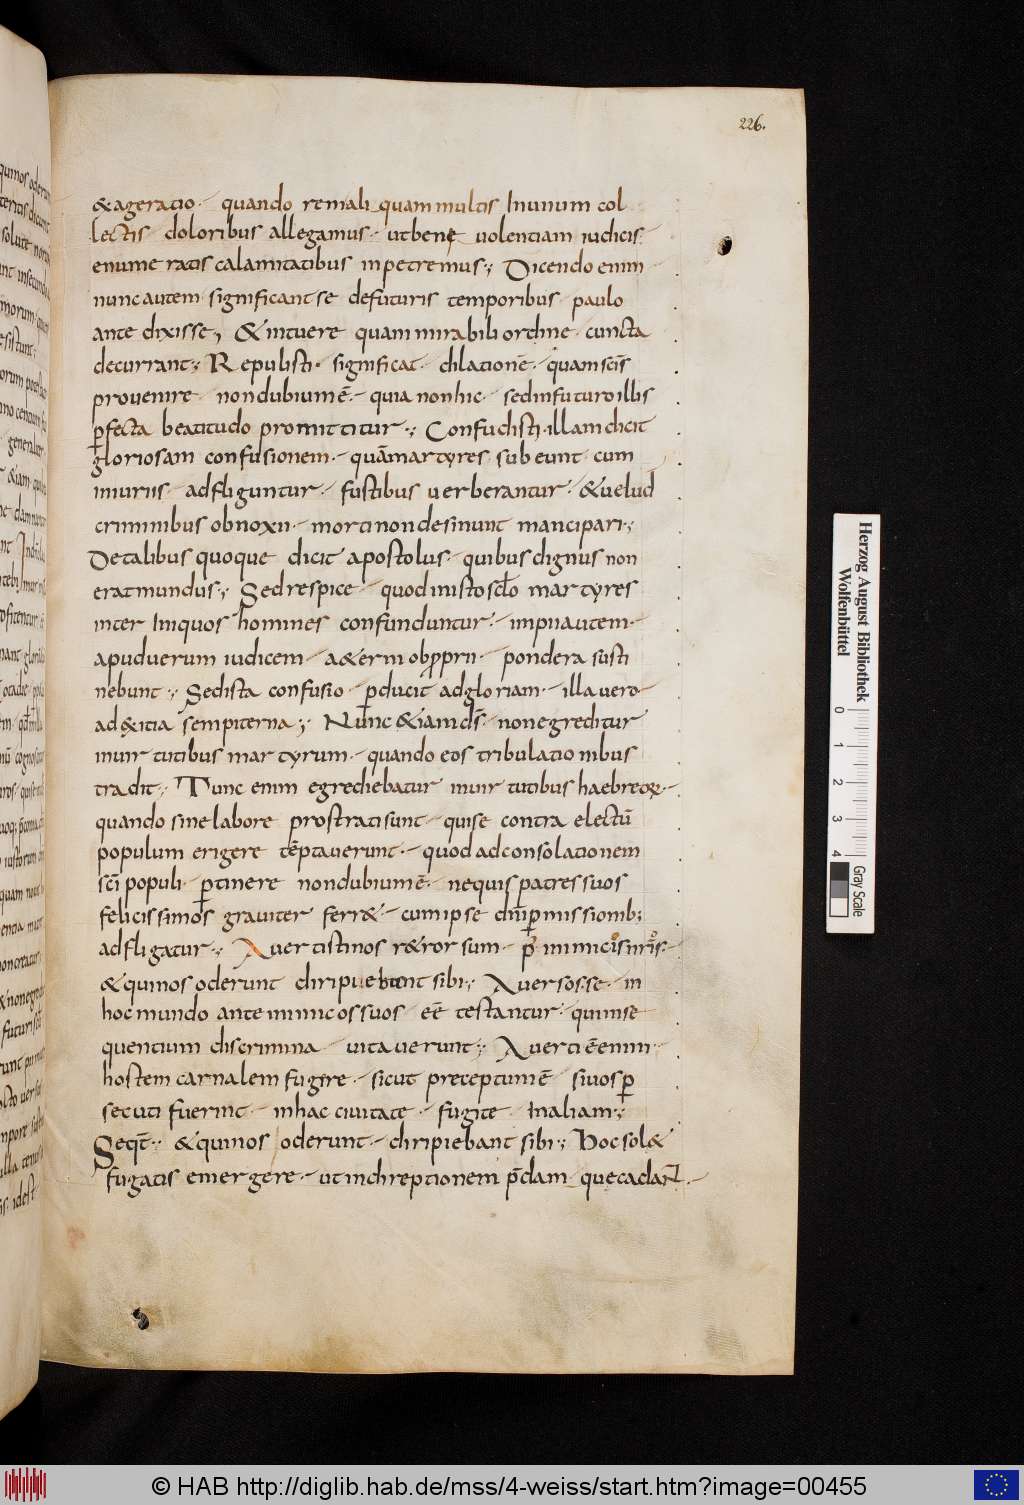 226.
&ageratio · quando remali quam multis Inunum col
lectis · doloribus allegamus · utbene uolentiam iudicis ·
enumeratis calamitatibus inpetremus ; Dicendo enim
nunc autem significant se defuturis temporibus · paulo
ante dixisse ; & intuere quam mirabili ordine · cuncta
decurrant ; Repulisti · significat · dilationē · quam scīs
prouenire · non dubium ē · quia non hic · sed in futuro illis
p̄fecta beatitudo promittitur ; Confudisti · illam dicit
gloriosam confusionem · quā martyres subeunt · cum
iniuriis · adfliguntur · fustibus uerberantur · & uelud
criminibus obnoxii · morti non desinunt mancipari ;
De talibus quoque dicit apostolus · quibus dignus non
erat mundus ; Sed respice · quod in isto sclo martyres
inter Iniquos homines confunduntur · impii autem ·
apud uerum iudicem · a&erni obpp̄rii · pondera susti
nebunt ; Sed ista confusio · p̄ducit ad gloriam · illa uero
ad &itia sempiterna ; Nunc & iam dn̄s · non egreditur
in uirtutibus martyrum · quando eos tribulationibus
tradit ; Tunc enim egrediebatur in uirtutibus haebreoꝝ ·
quando sine labore prostrati sunt · qui se contra electū
populum erigere tēptauerunt · quod ad consolationem
scī populi · p̄tinere non dubium ē · ne quis patres suos
felicissimos grauiter ferr& · cum ipse dn̄m p̄missionib;
adfligatur ; Auertisti nos r&rorsum · p̄ inimicos nr̄os ·
& qui nos oderunt diripuebant sibi ; Auersos se · in
hoc mundo ante inimicos suos · eē testantur · qui inse
quentium discrimina uitauerunt ; Auerti ē enim ·
hostem carnalem fugire · sicut preceptum ē si uos p̄
secuti fuerint · in hac ciuitate · fugite In aliam ;
Seqt̄ ; & qui nos oderunt · diripiebant sibi ; Hoc sol&
fugatis emergere · ut in direptionem p̄dam que cadant ·
Herzog August Bibliothek
Wolfenbüttel
0 1 2 3 4
Gray Scale
© HAB http://diglib.hab.de/mss/4-weiss/start.htm?image=00455